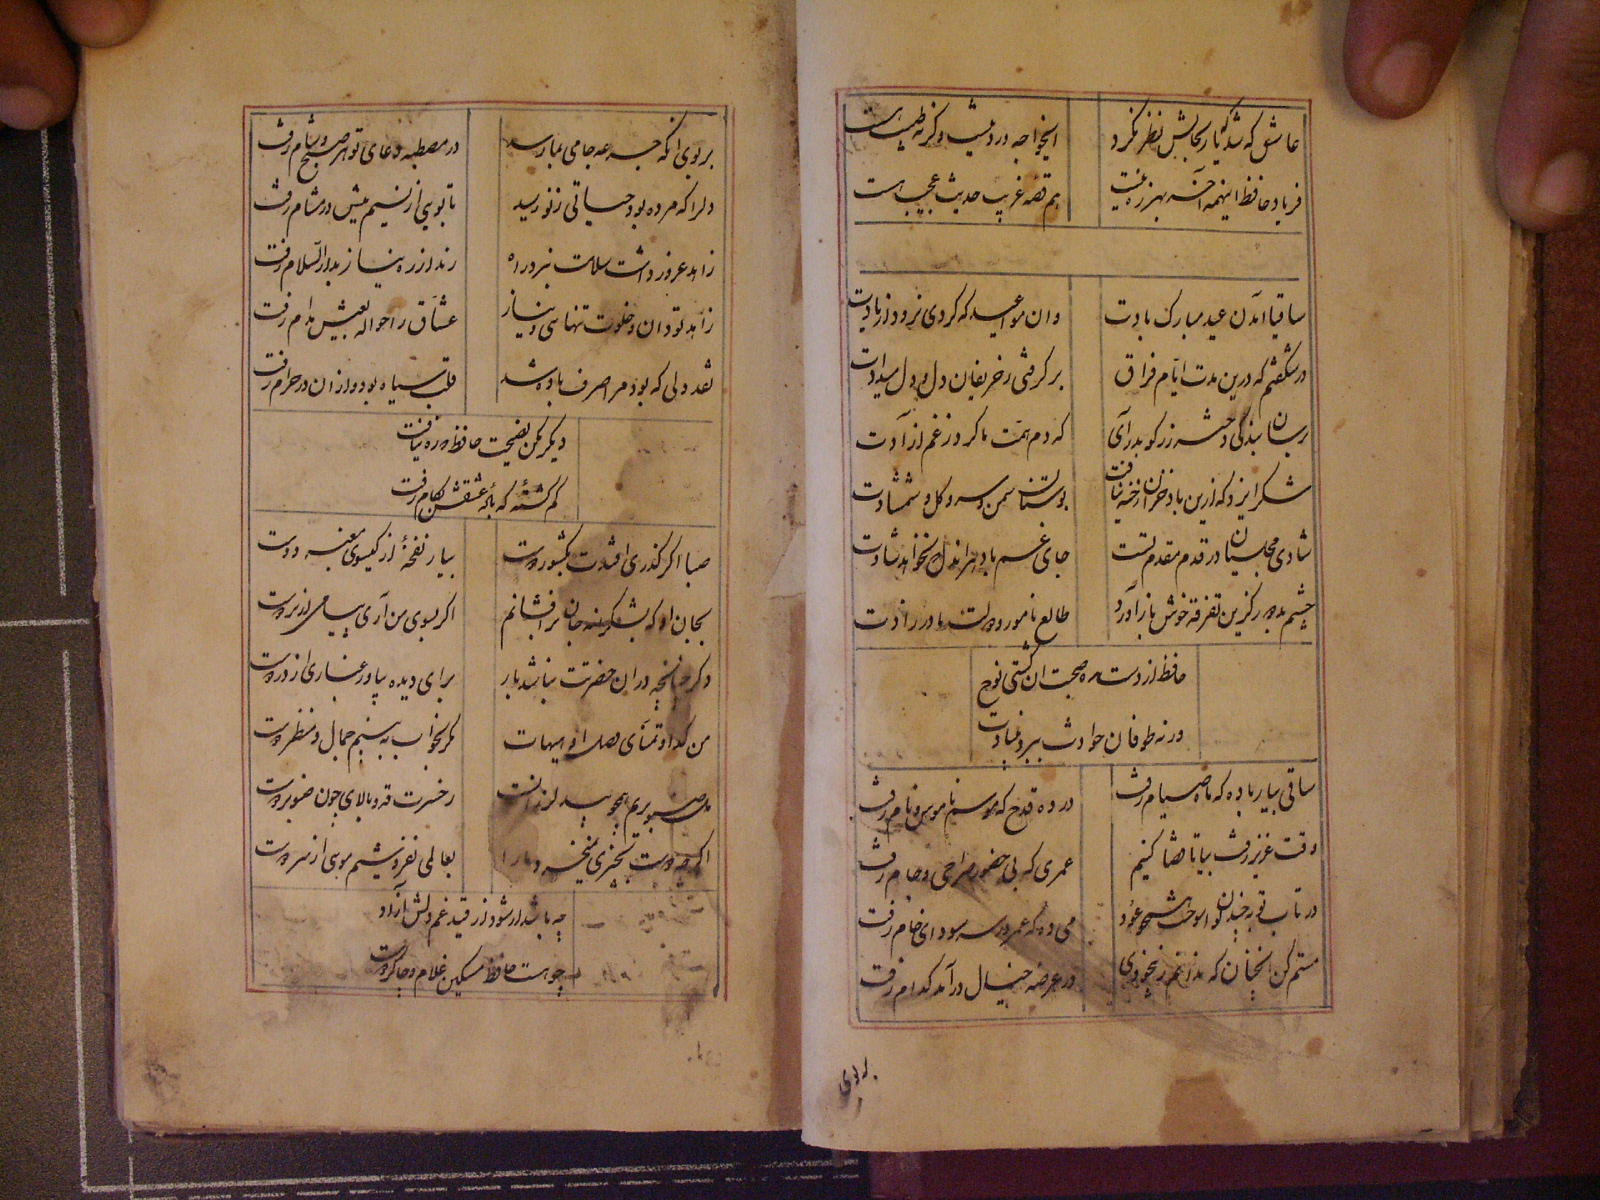 عاشق که شد که یار بحالش نظر نکرد
ای خواجه درد نیست وگرنه طبیب هست
فریاد حافظ اینهمه آخر بهرزه نیست
هم قصه غریب و حدیث عجیب هست
ساقیا آمدن عید مبارک بادت
وان مواعید که کردی نرود از یادت
در شگفتم که درین مدت ایام فراق
برگرفتی ز حریفان دل و دل میدادت
برسان بندگی دختر رز گو بدر آی
که دم همت ما کرد ز غم آزادت
شکر ایزد که ازین باد خزان رخنه نیافت
بوستان سمن و سرو و گل و شمشادت
شادی مجلسیان در قدم مقدم تست
جای غم باد هر آندل که نخواهد شادت
چشم بد دور کزین تفرقه خوش باز آورد
طالع نامور و دولت مادرزادت
حافظ از دست مده صحبت آن کشتی نوح
ورنه طوفان حوادث ببرد بنیادت
ساقی بیار باده که ماه صیام رفت
در ده قدح که موسم ناموس و نام رفت
وقت عزیز رفت بیا تا قضا کنیم
عمری که بی حضور صراحی و جام رفت
در تاب توبه چند توان سوخت همچو عود
می ده که عمر در سر سودای خام رفت
مستم کن آنچنان که ندانم ز بیخودی
در عرصه خیال که آمد کدام رفت
بر بوی آنکه جرعه جامی بما رسد
در مصطبه دعای تو هر صبح و شام رفت
دل را که مرده بود حیاتی ز نو رسید
تا بویی از نسیم میش در مشام رفت
زاهد غرور داشت سلامت نبرد راه
رند از ره نیاز بدارالسلام رفت
زاهد تو دان و خلوت تنهایی و نیاز
عشاق را حواله بعیش مدام رفت
نقد دلی که بود مرا صرف باده شد
قلب سیاه بود از آن در حرام رفت
دیگر مکن نصیحت حافظ که ره نیافت
گم گشته که باده عشقش بکام رفت
صبا اگر گذری افتدت بکشور دوست
بیار نفحه از گیسوی معنبر دوست
بجان او که بشکرانه جان برافشانم
اگر بسوی من آری پیامی از بر دوست
وگر چنانچه در آن حضرتت نباشد بار
برای دیده بیاور غباری از در دوست
من گدا و تمنای وصل او هیهات
مگر بخواب به بینم جمال و منظر دوست
دل صنوبریم همچو بید لرزانست
ز حسرت قد و بالای چون صنوبر دوست
اگرچه دوست بچیزی نمیخرد ما را
بعالمی نفروشیم مویی از سر دوست
چه باشد ار شود از قید غم دلش آزاد
چو هست حافظ مسکین غلام و چاکر دوست